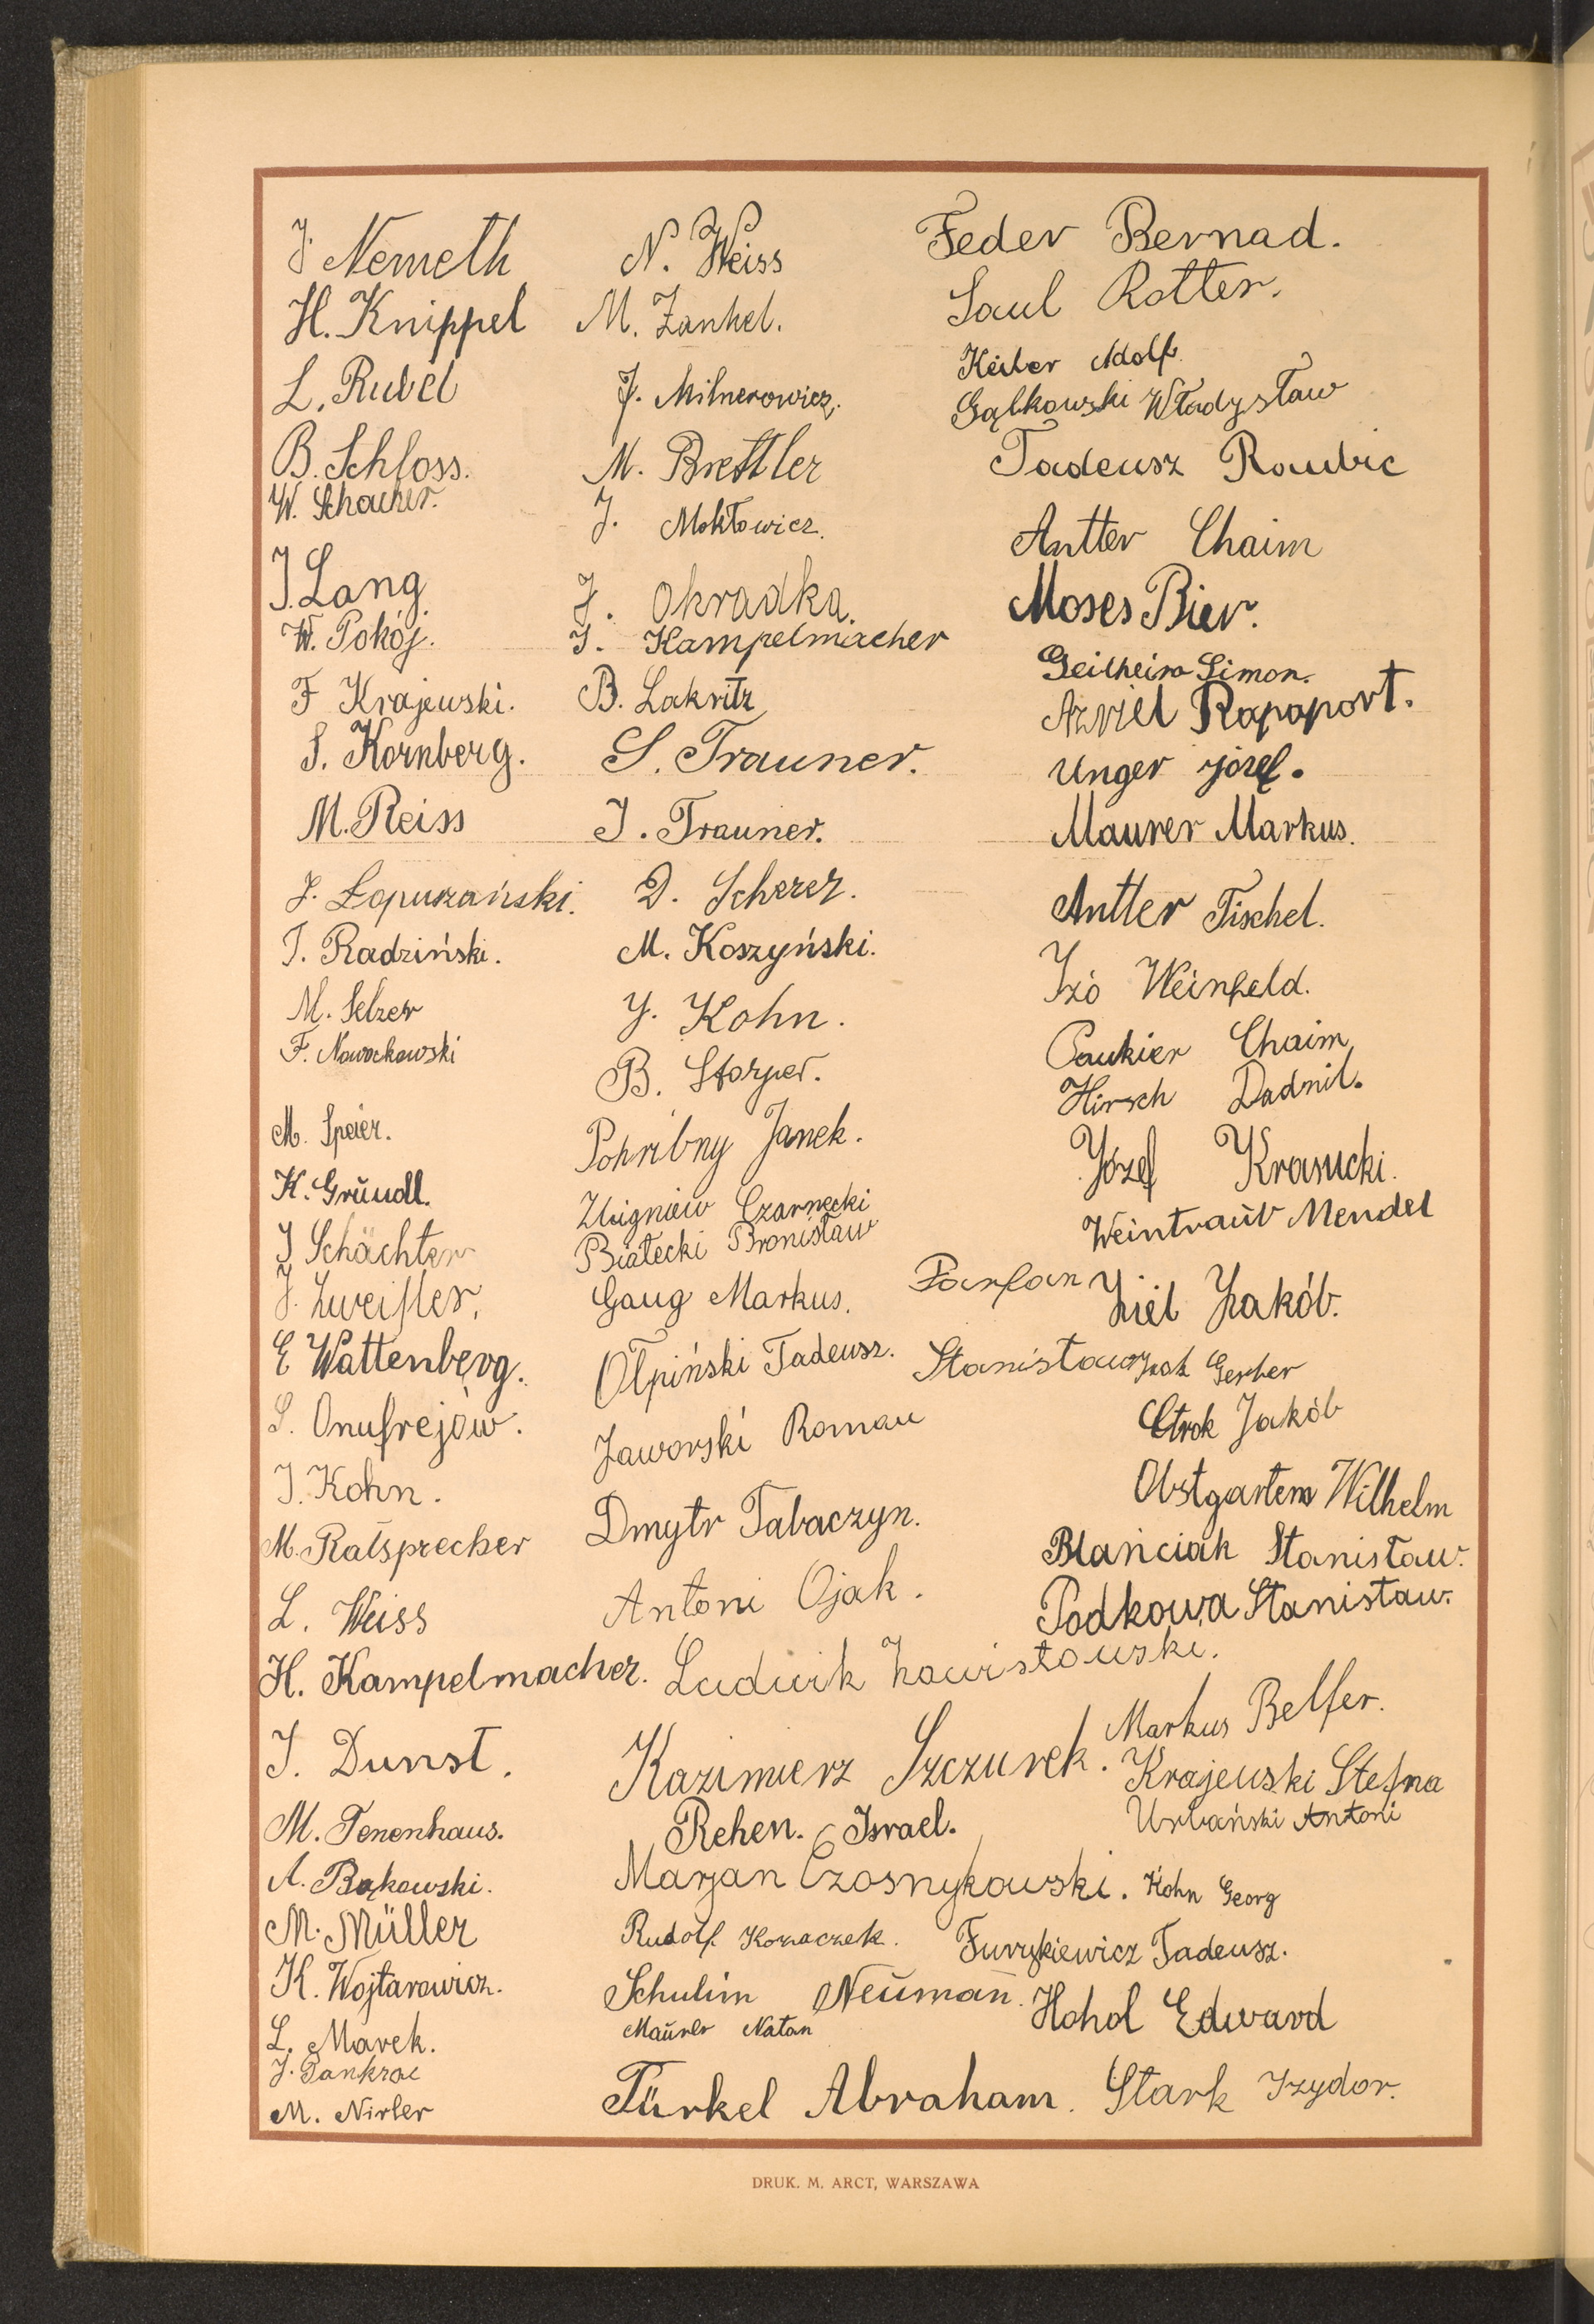 J. Nemeth
H. Knippel
L. Rubel
B. Schloss.
W. Schacher.
J. Lang
W. Pokój.
F Krajewski.
S. Kornberg.
M. Reiss
J. Łopuszański.
T. Radziński.
M. Selzer
F. Nowakowski
M. Speier.
K. Gründl.
J Schächter
J. Zweifler.
E Wattenberg.
S. Onufrejów.
J. Kohn.
M. Ratsprecher
L. Weiss
H. Kampelmacher.
J. Dunst.
M. Tenenhaus.
A. Bąkowski.
M. Müller
K. Wojtarowicz.
L. Marek.
J. Pankrac
M. Nirler
N. Weiss
M. Zankel.
J. Milnerowicz.
M. Brettler
J. Mokłowicz.
J. Okradka.
J. Kampelmacher
B. Lakritz
S. Trauner.
J. Trauner.
D. Scherer.
M. Koszyński.
J. Kohn.
B. Storper.
Pohribny Janek.
Zbigniew Czarnecki
Białecki Bronisław
Gaug Markus.
Ołpiński Tadeusz.
Jaworski Roman
Dmytr Tabaczyn.
Antoni Ojak.
Ludwik Zawistowski.
Kazimierz Szczurek.
Rehen. Israel.
Marjan Czosnykowski.
Rudolf Kozaczek.
Schulim Neuman.
Maurer Natan
Türkel Abraham.
Feder Bernad.
Saul Rotter.
Keiler Adolf.
Gąlkowski Władysław
Tadeusz Raubic
Antter Chaim
Moses Bier.
Geilheim Simon.
Azriel Rapaport.
Unger józef.
Maurer Markus.
Antler Fischel.
Izio Weinfeld.
Caukier Chaim,
Hirsch Dadnil.
Józef Krasucki.
Weintraub Mendel
Parfan
Stanisław
Ziel Izakób.
Izak Gerber
Strok Jakób
Obstgarten Wilhelm
Blańciak Stanisław.
Podkowa Stanisław.
Markus Belfer.
Krajewski Stefna
Urbański Antoni
Kohn Georg
Furykiewicz Tadeusz.
Hohol Edward
Stark Izydor.
DRUK. M. ARCT, WARSZAWA